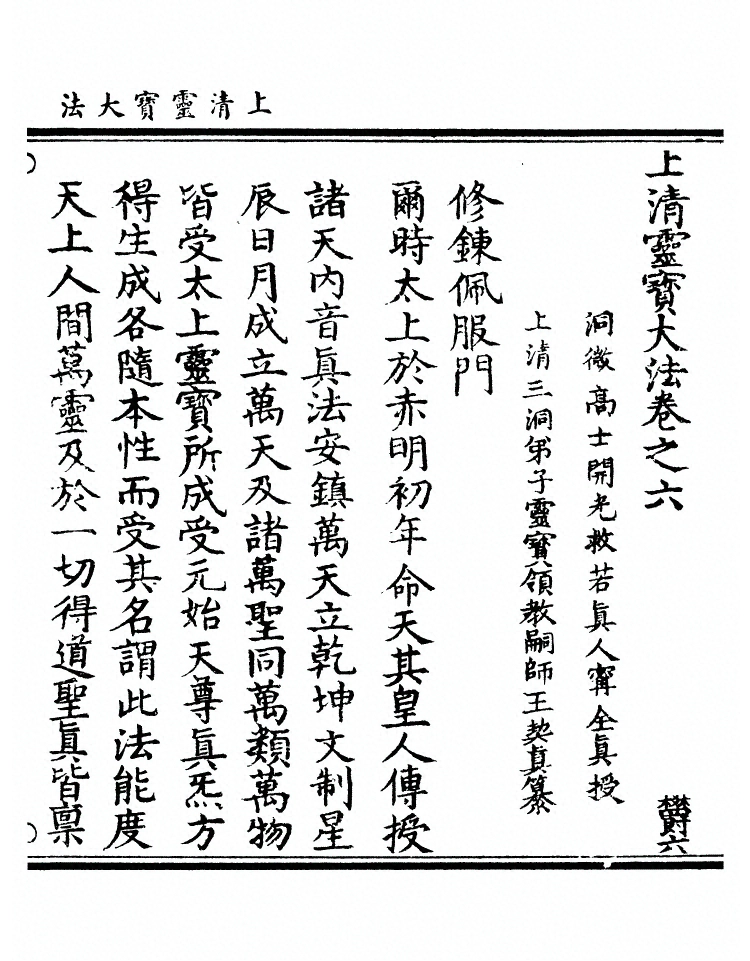 上清靈寶大法
上清靈寶大法卷之六 鬱六
洞微高士開光救苦眞人甯全眞授
上清三洞弟子靈寳領教嗣師王契真纂
修鍊佩服門
爾時太上於赤明初年命天其皇人傳授
諸天内音眞法安鎮萬天立乾坤文制星
辰日月成立萬天及諸萬聖同萬類萬物
皆受太上靈寳所成受元始天尊眞炁方
得生成各隨本性而受其名謂此法能度
天上人間萬靈及於一切得道聖眞皆禀